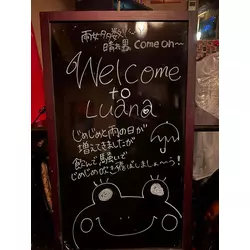 雨女多数!!
晴れ男 Come on~
Welcome
to
Luana
じめじめと雨の日が
増えてきましたが
飲んで騒いで
じめじめ吹き飛ばしましょ〜う!